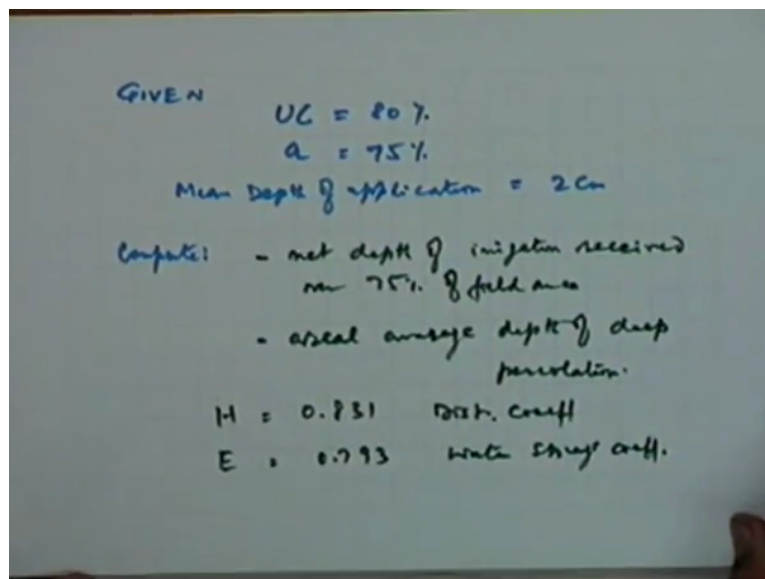 GIVEN
UC = 80 %.
a = 75 %.
Mean Depth of application = 2 Cm
Compute: - net depth of irrigation received
over 75% of field area
- areal average depth of deep
percolation.
H = 0.831 Dist. coeff
E = 0.793 Water storage coeff.